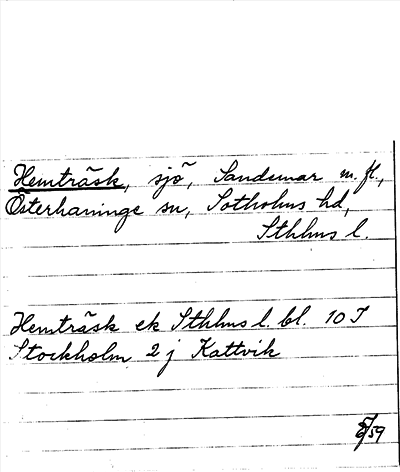 Hemträsk, sjö, Sandemar m. fl.,
Österhaninge sn, Sotholms hd,
Sthlms l.
Hemträsk ek Sthlms l. bl. 10 I
Stockholm 2 j Kattvik
/59